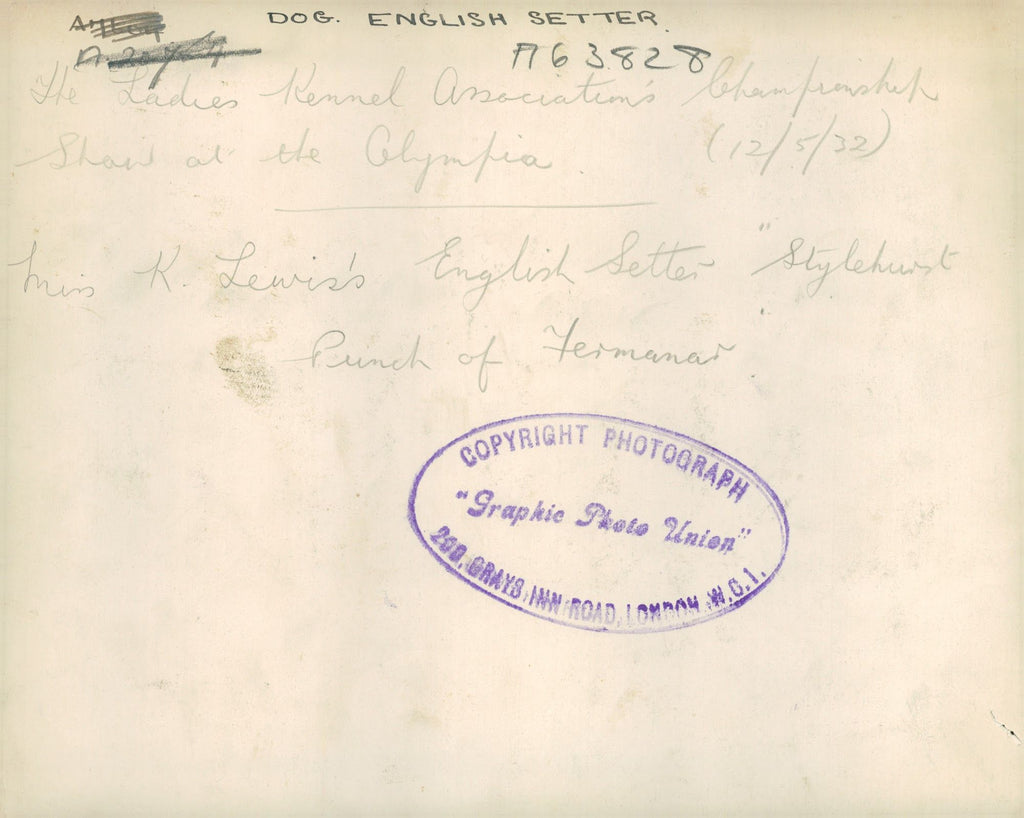 DOG. ENGLISH SETTER
A63828
The Ladies Kennel Association's Championship
Show at the Olympia (12/5/32)
Miss K. Lewis's English Setter "Stylehurst
Punch of Fermanar
COPYRIGHT PHOTOGRAPH
"Graphic Photo Union"
200, GRAYS INN ROAD, LONDON, W.C.1.